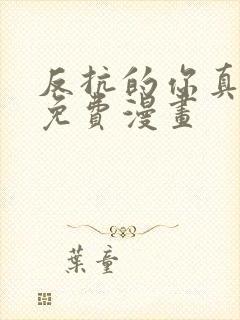 反抗的你真
免費漫畫
葉童